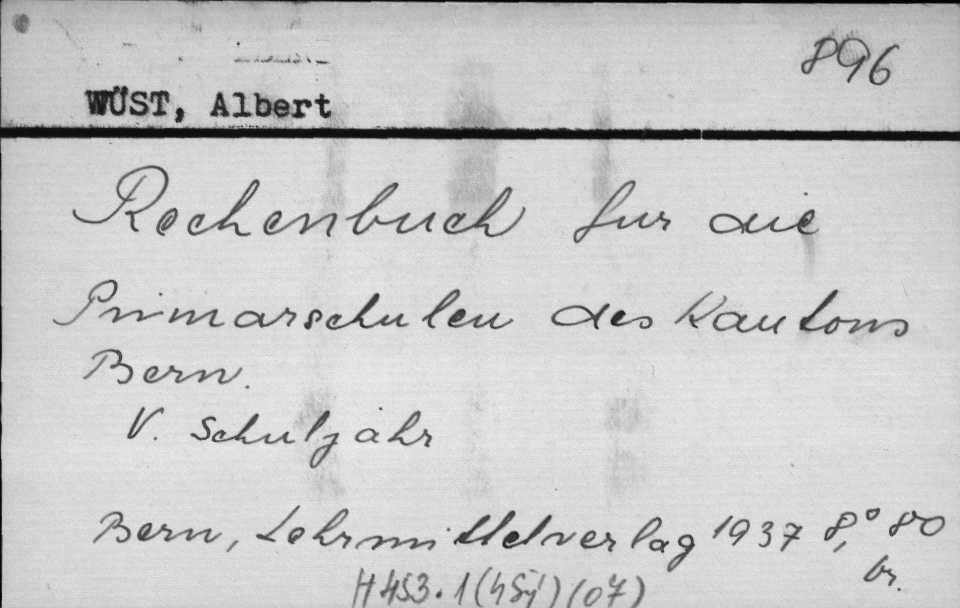 896
WÜST, Albert
Rechenbuch fur die
Primarschulen des Kantons
Bern.
V. Schuljahr
Bern, Lehrmittelverlag 1937 8,° 80
br.
H 453.1 (07)